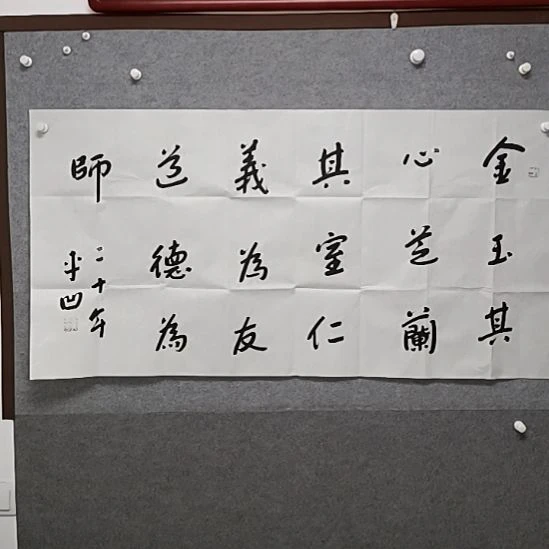 金玉其
心芝蘭
其室仁
義為友
道德為
師
二十年
平凹